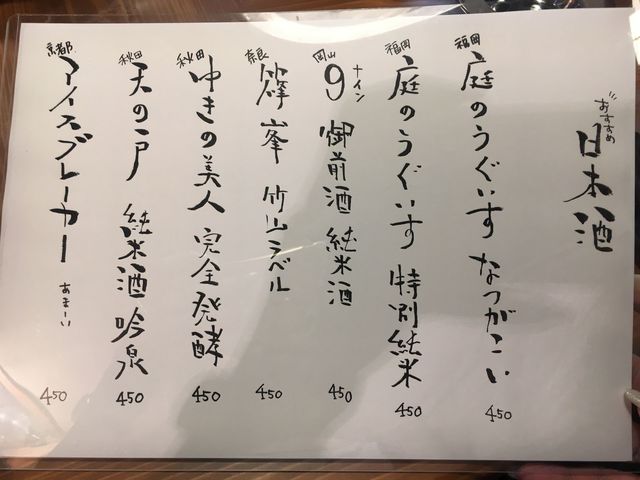 おすすめ
日本酒
福岡
庭のうぐいす なつがこい
450
福岡
庭のうぐいす 特別純米
450
岡山
9 ナイン 御前酒 純米酒
450
奈良
篠峯 竹山ラベル
450
秋田
ゆきの美人 完全発酵
450
秋田
天の戸 純米酒 吟泉
450
京都
アイスブレーカー あまーい
450